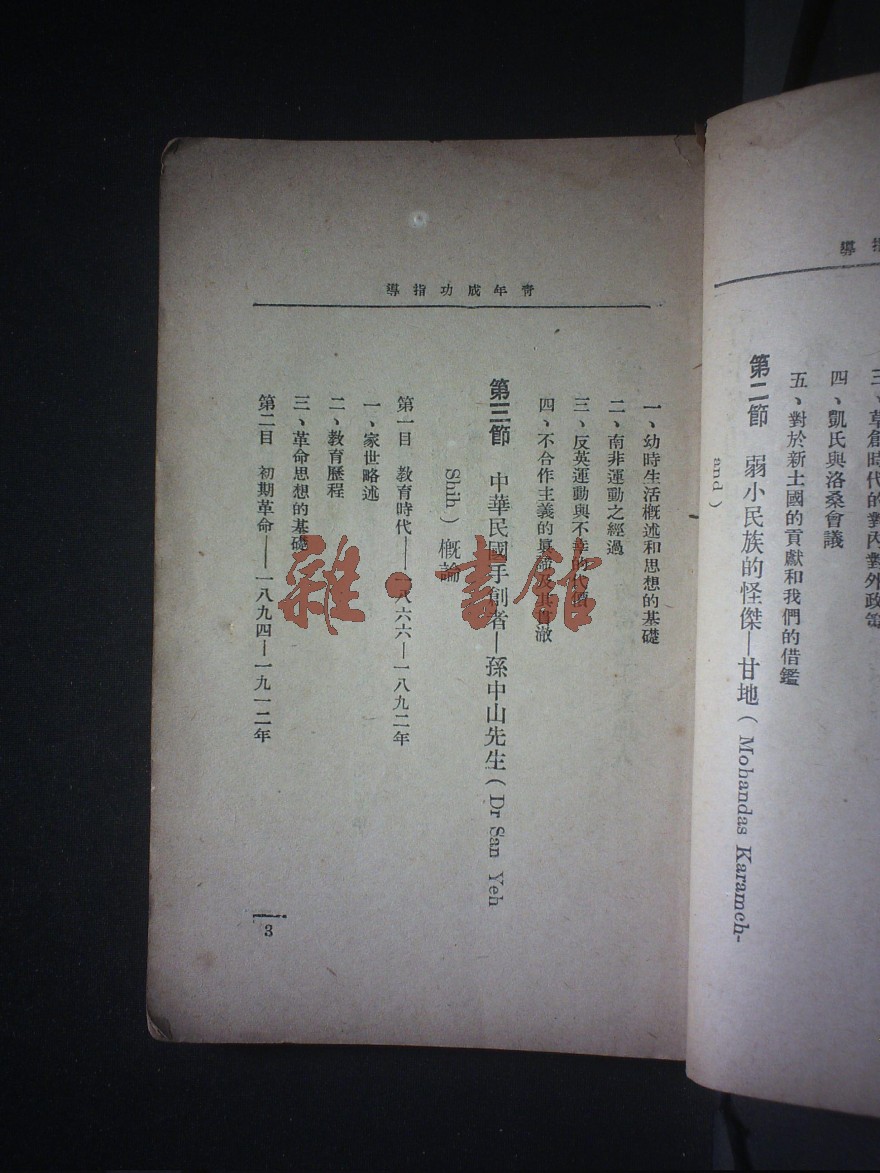 三、草創時代的對內對外政策
四、凱氏與洛桑會議
五、對於新土國的貢獻和我們的借鑑
第二節 弱小民族的怪傑—甘地(Mohandas Karameh-
and)
青年成功指導
一、幼時生活概述和思想的基礎
二、南非運動之經過
三、反英運動與不幸的代價
四、不合作主義的真諦及其
第三節 中華民國手創者—孫中山先生(Dr San Yeh
Shih)概論
第一目 教育時代——一八六六—一八九二年
一、家世略述
二、教育歷程
三、革命思想的基礎
第二目 初期革命——一八九四—一九一二年
3
雜·書館